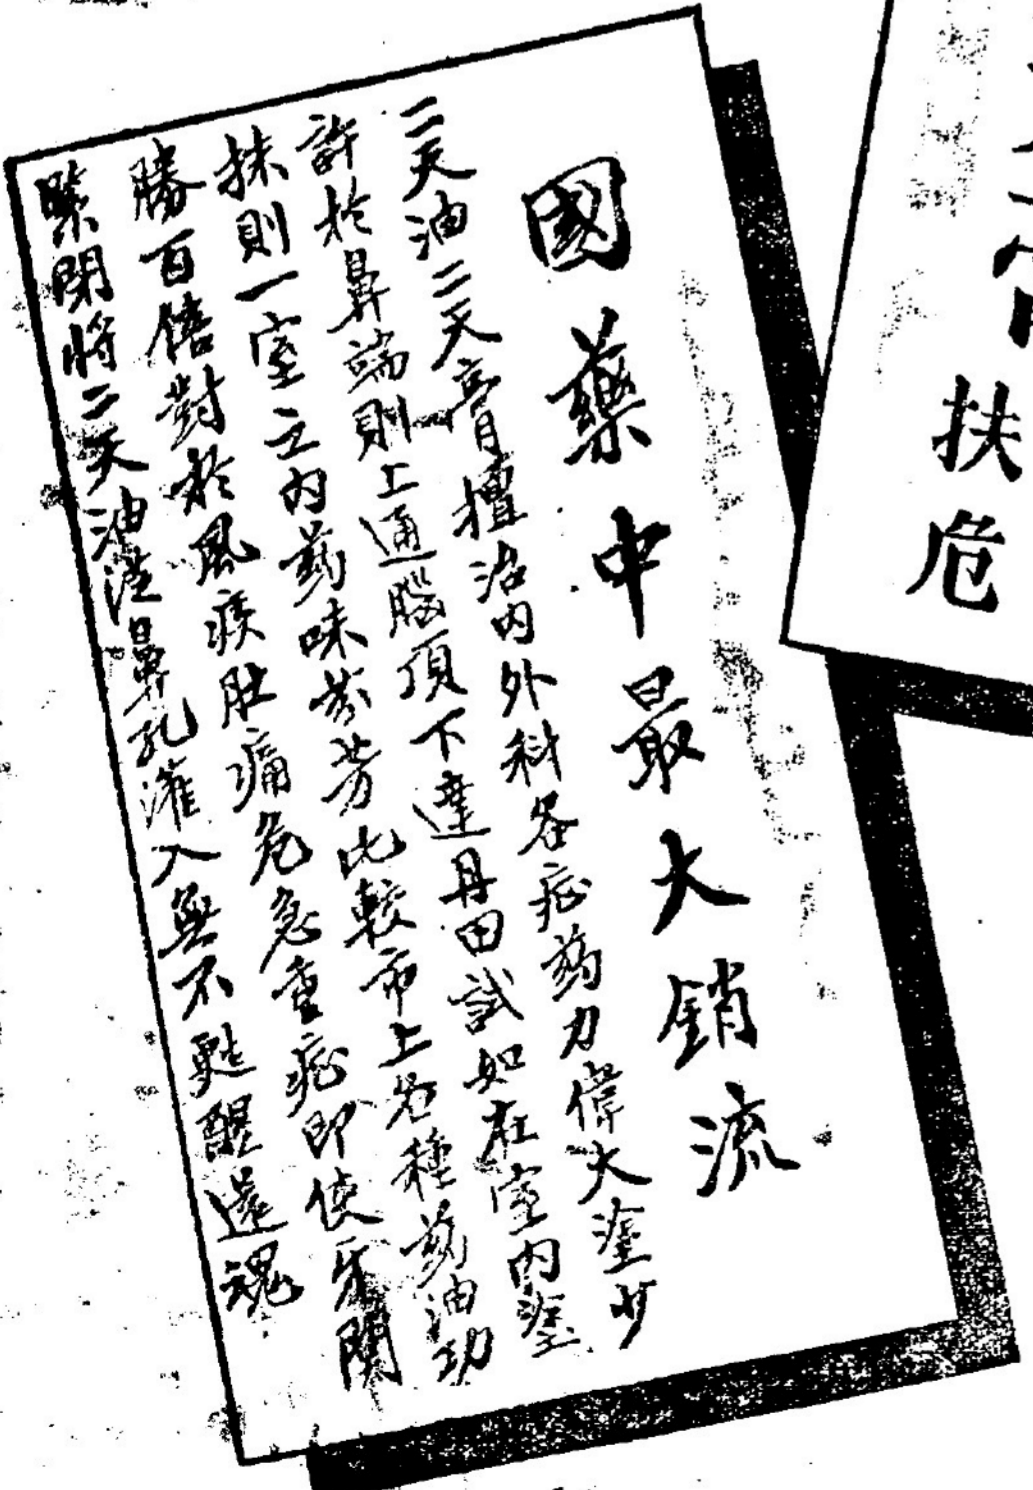 國藥中最大銷流
二天油二天膏擅治內外科各症药力偉大塗少
許於鼻端則上通腦頂下達丹田試如在室内塗
抹則一室之内药味芬芳比較市上各種药油功
勝百倍對於風痰肚痛危急重症即使牙關
緊閉將二天油從鼻孔灌入無不甦醒還魂
扶危